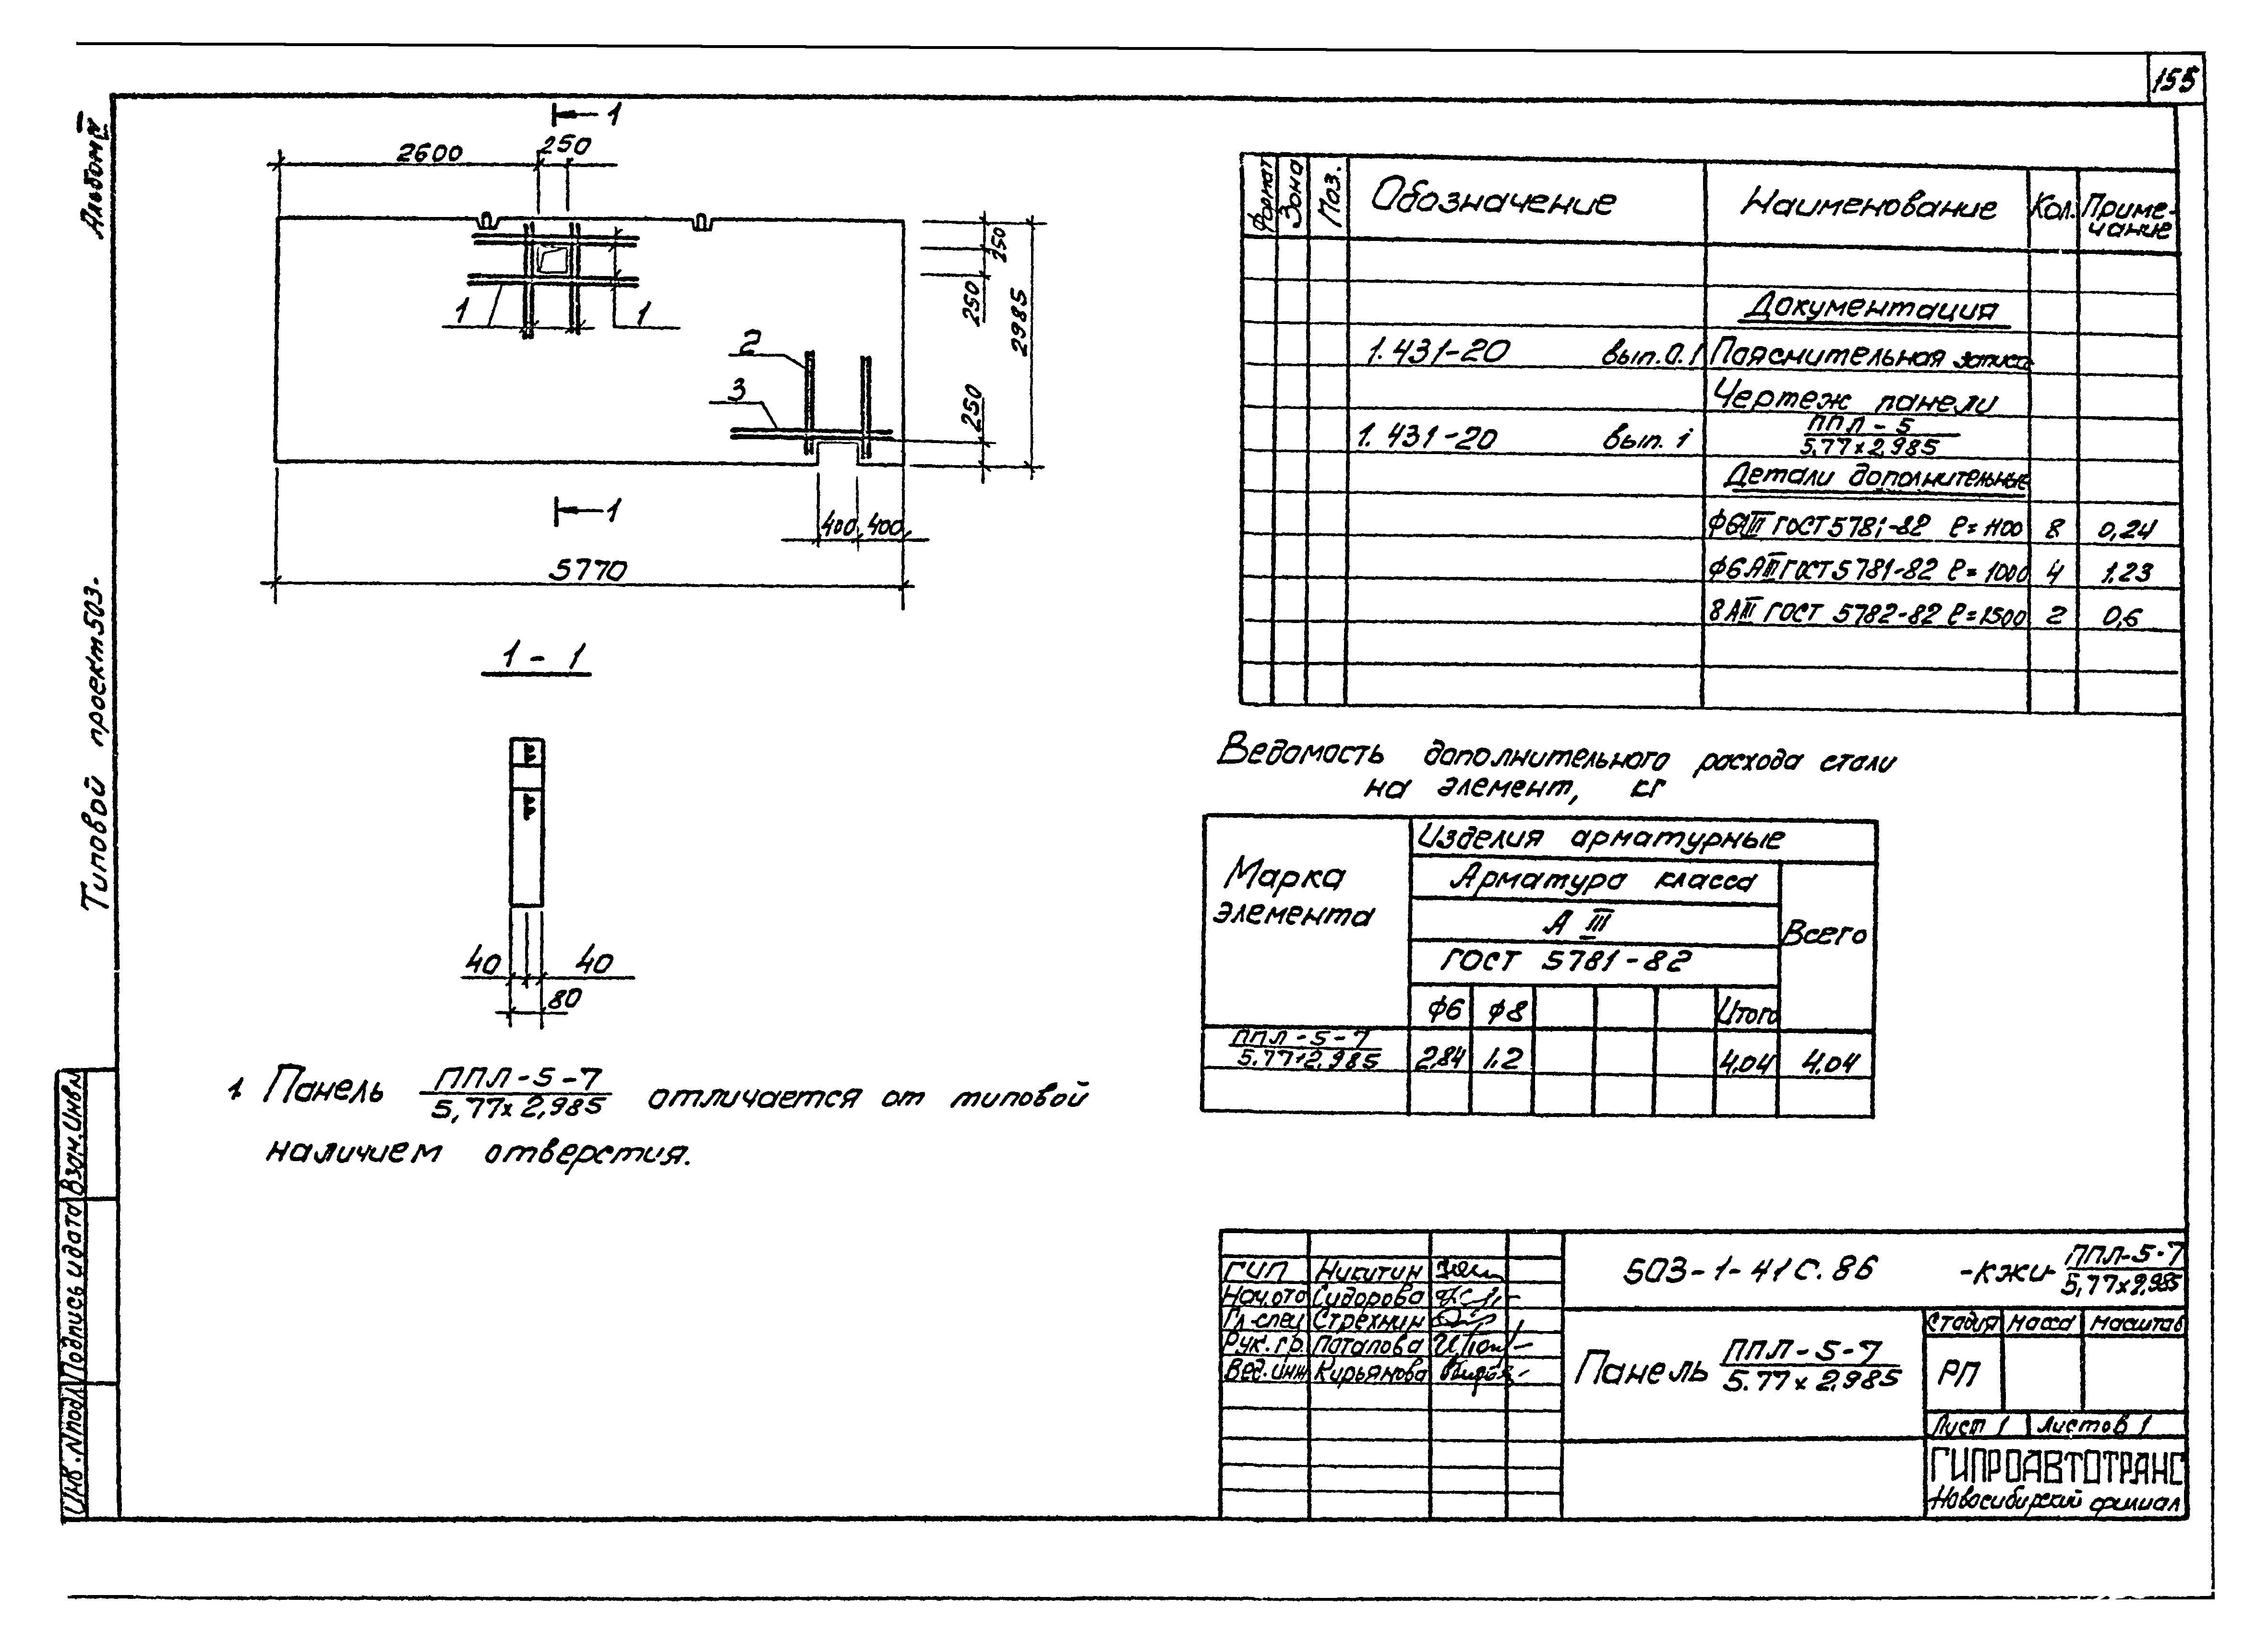 155
Альбом IV
Типовой проект 503.
Взам.Инв.№
Подпись и дата
Инв.№подл
1
2600
250
250
250
2985
1
1
2
3
250
1
400
400
5770
1-1
40
40
80
1 Панель ППЛ-5-7 / 5,77х2,985 отличается от типовой
наличием отверстия.
Формат
Зона
Поз.
Обозначение
Наименование
Кол.
Приме-
чание
Документация
1.431-20 вып.0.1 Пояснительная записка
Чертеж панели
1.431-20 вып. 1 ППЛ-5 / 5,77х2,985
Детали дополнительные
ф6АIII ГОСТ 5781-82 ℓ=1100 8 0,24
ф6АIII ГОСТ 5781-82 ℓ=1000 4 1,23
8АIII ГОСТ 5782-82 ℓ=1500 2 0,6
Ведомость дополнительного расхода стали
на элемент, кг
Марка
элемента
Изделия арматурные
Арматура класса
А III
ГОСТ 5781-82
Всего
ф6 ф8 Итого
ППЛ-5-7 / 5.77х2,985 2,84 1.2 4,04 4.04
ГИП Никитин
Нач.отд Сидорова
Гл.спец Стрехнин
Рук.гр. Потапова
Вед.инж Кирьянова
503-1-41С.86 -КЖИ- ППЛ-5-7 / 5,77х2,985
Панель ППЛ-5-7 / 5.77х2,985
Стадия Масса Масштаб
РП
Лист 1 Листов 1
ГИПРОАВТОТРАНС
Новосибирский филиал